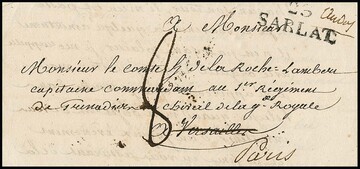 à Monsieur
23
SARLAT
Monsieur le comte de la Roche-Lambert
capitaine commandant au 1er Régiment
de Grenadiers à Cheval de la gde Royale
8
à Versailles
Paris